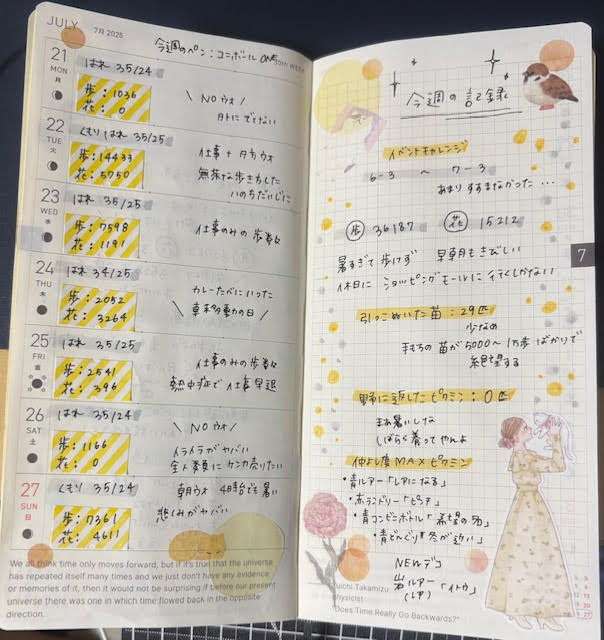 JULY
7月 2025
今週のペン：ユニボール ONE
21
MON
月
はれ 35/24
歩：1036
花：0
\ NOウォ /
外にでてない
22
TUE
火
くもりはれ 35/25
歩：14433
花：5750
仕事+夕方ウォ
無茶な歩きかたした
いのちだいじに
23
WED
水
はれ 35/25
歩：7598
花：1191
仕事のみの歩数
24
THU
木
はれ 34/25
歩：2052
花：3264
カレーたべにいった
\ 車移動の日 /
25
FRI
金
はれ 35/25
歩：2541
花：396
仕事のみの歩数
熱中症で仕事早退
26
SAT
土
はれ 35/24
歩：1166
花：0
\ NOウォ /
イライラがヤバい
全人類にケンカ売りたい
27
SUN
日
くもり 35/24
歩：7361
花：4611
朝ウォ 4時台でも暑い
悲しみがヤバい
We all think time only moves forward, but if it's true that the universe
has repeated itself many times and we just don't have any evidence
or memories of it, then it would not be surprising if before our present
universe there was one in which time flowed back in the opposite
direction.
今週の記録
イベントチャレンジ
6-3 〜 7-3
あまりすすまなかった…
歩 36187 花 15212
暑すぎて歩けず 早朝もきびしい
休日にショッピングモールに行くしかない
7
引っこぬいた苗：29匹
少なめ
手もちの苗が5000〜1万歩ばかりで
絶望する
野に返したピクミン：0匹
まぁ暑いしな
しばらく養ってやんよ
仲よし度MAXピクミン
・青ルアー「レアになる」
・赤ランドリー「ピチ」
・青コンビーボトル「希望の
・青どんぐり「冬が近い」
NEWデコ
岩ルアー「イトウ」
(レア)
uichi Takamizu
physicist
"Does Time Really Go Backwards?"